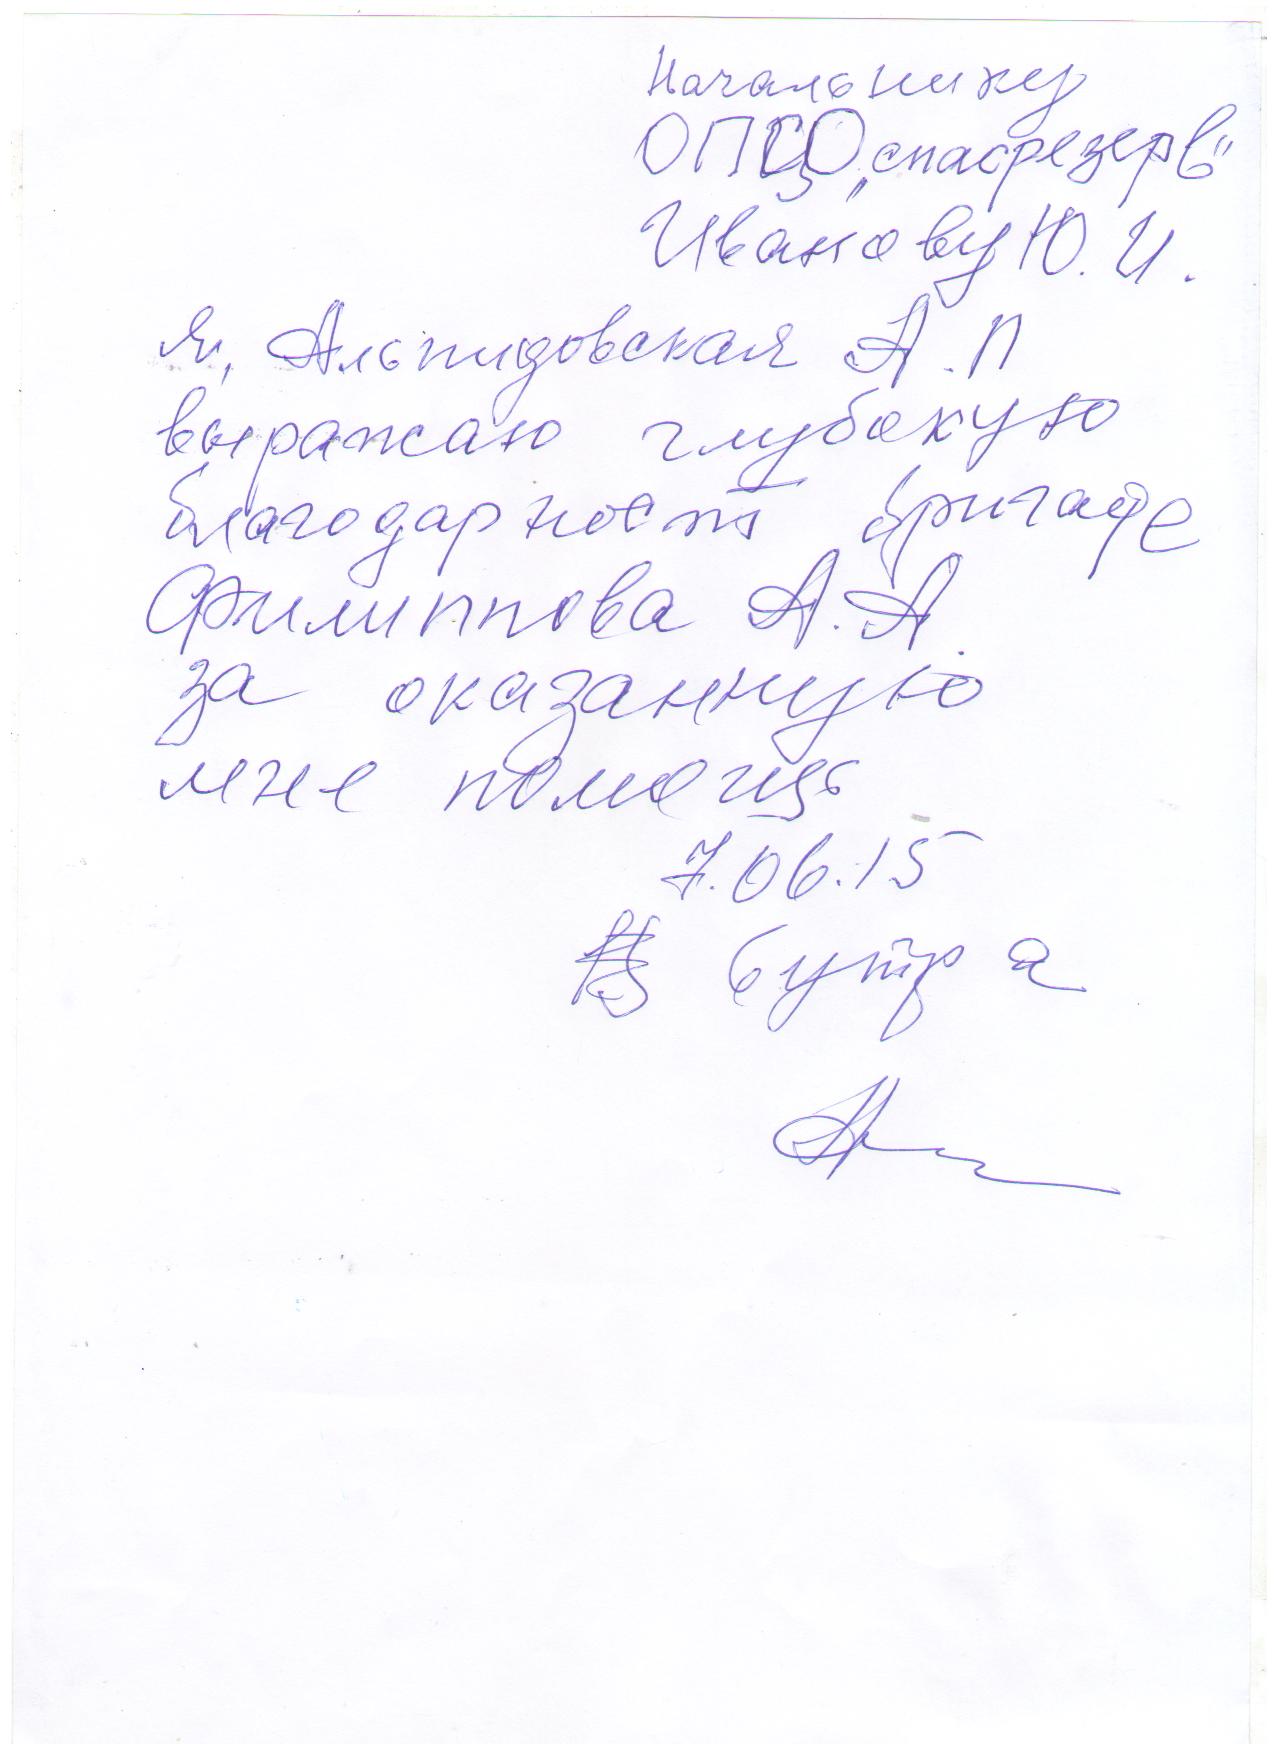 Начальнику
ОПСО „спасрезерв"
Иванову Ю. И.
Я, Альпидовская А. П
выражаю глубокую
благодарность бригаде
Филиппова А. А.
за оказанную
мне помощь
7.06.15
6 утра